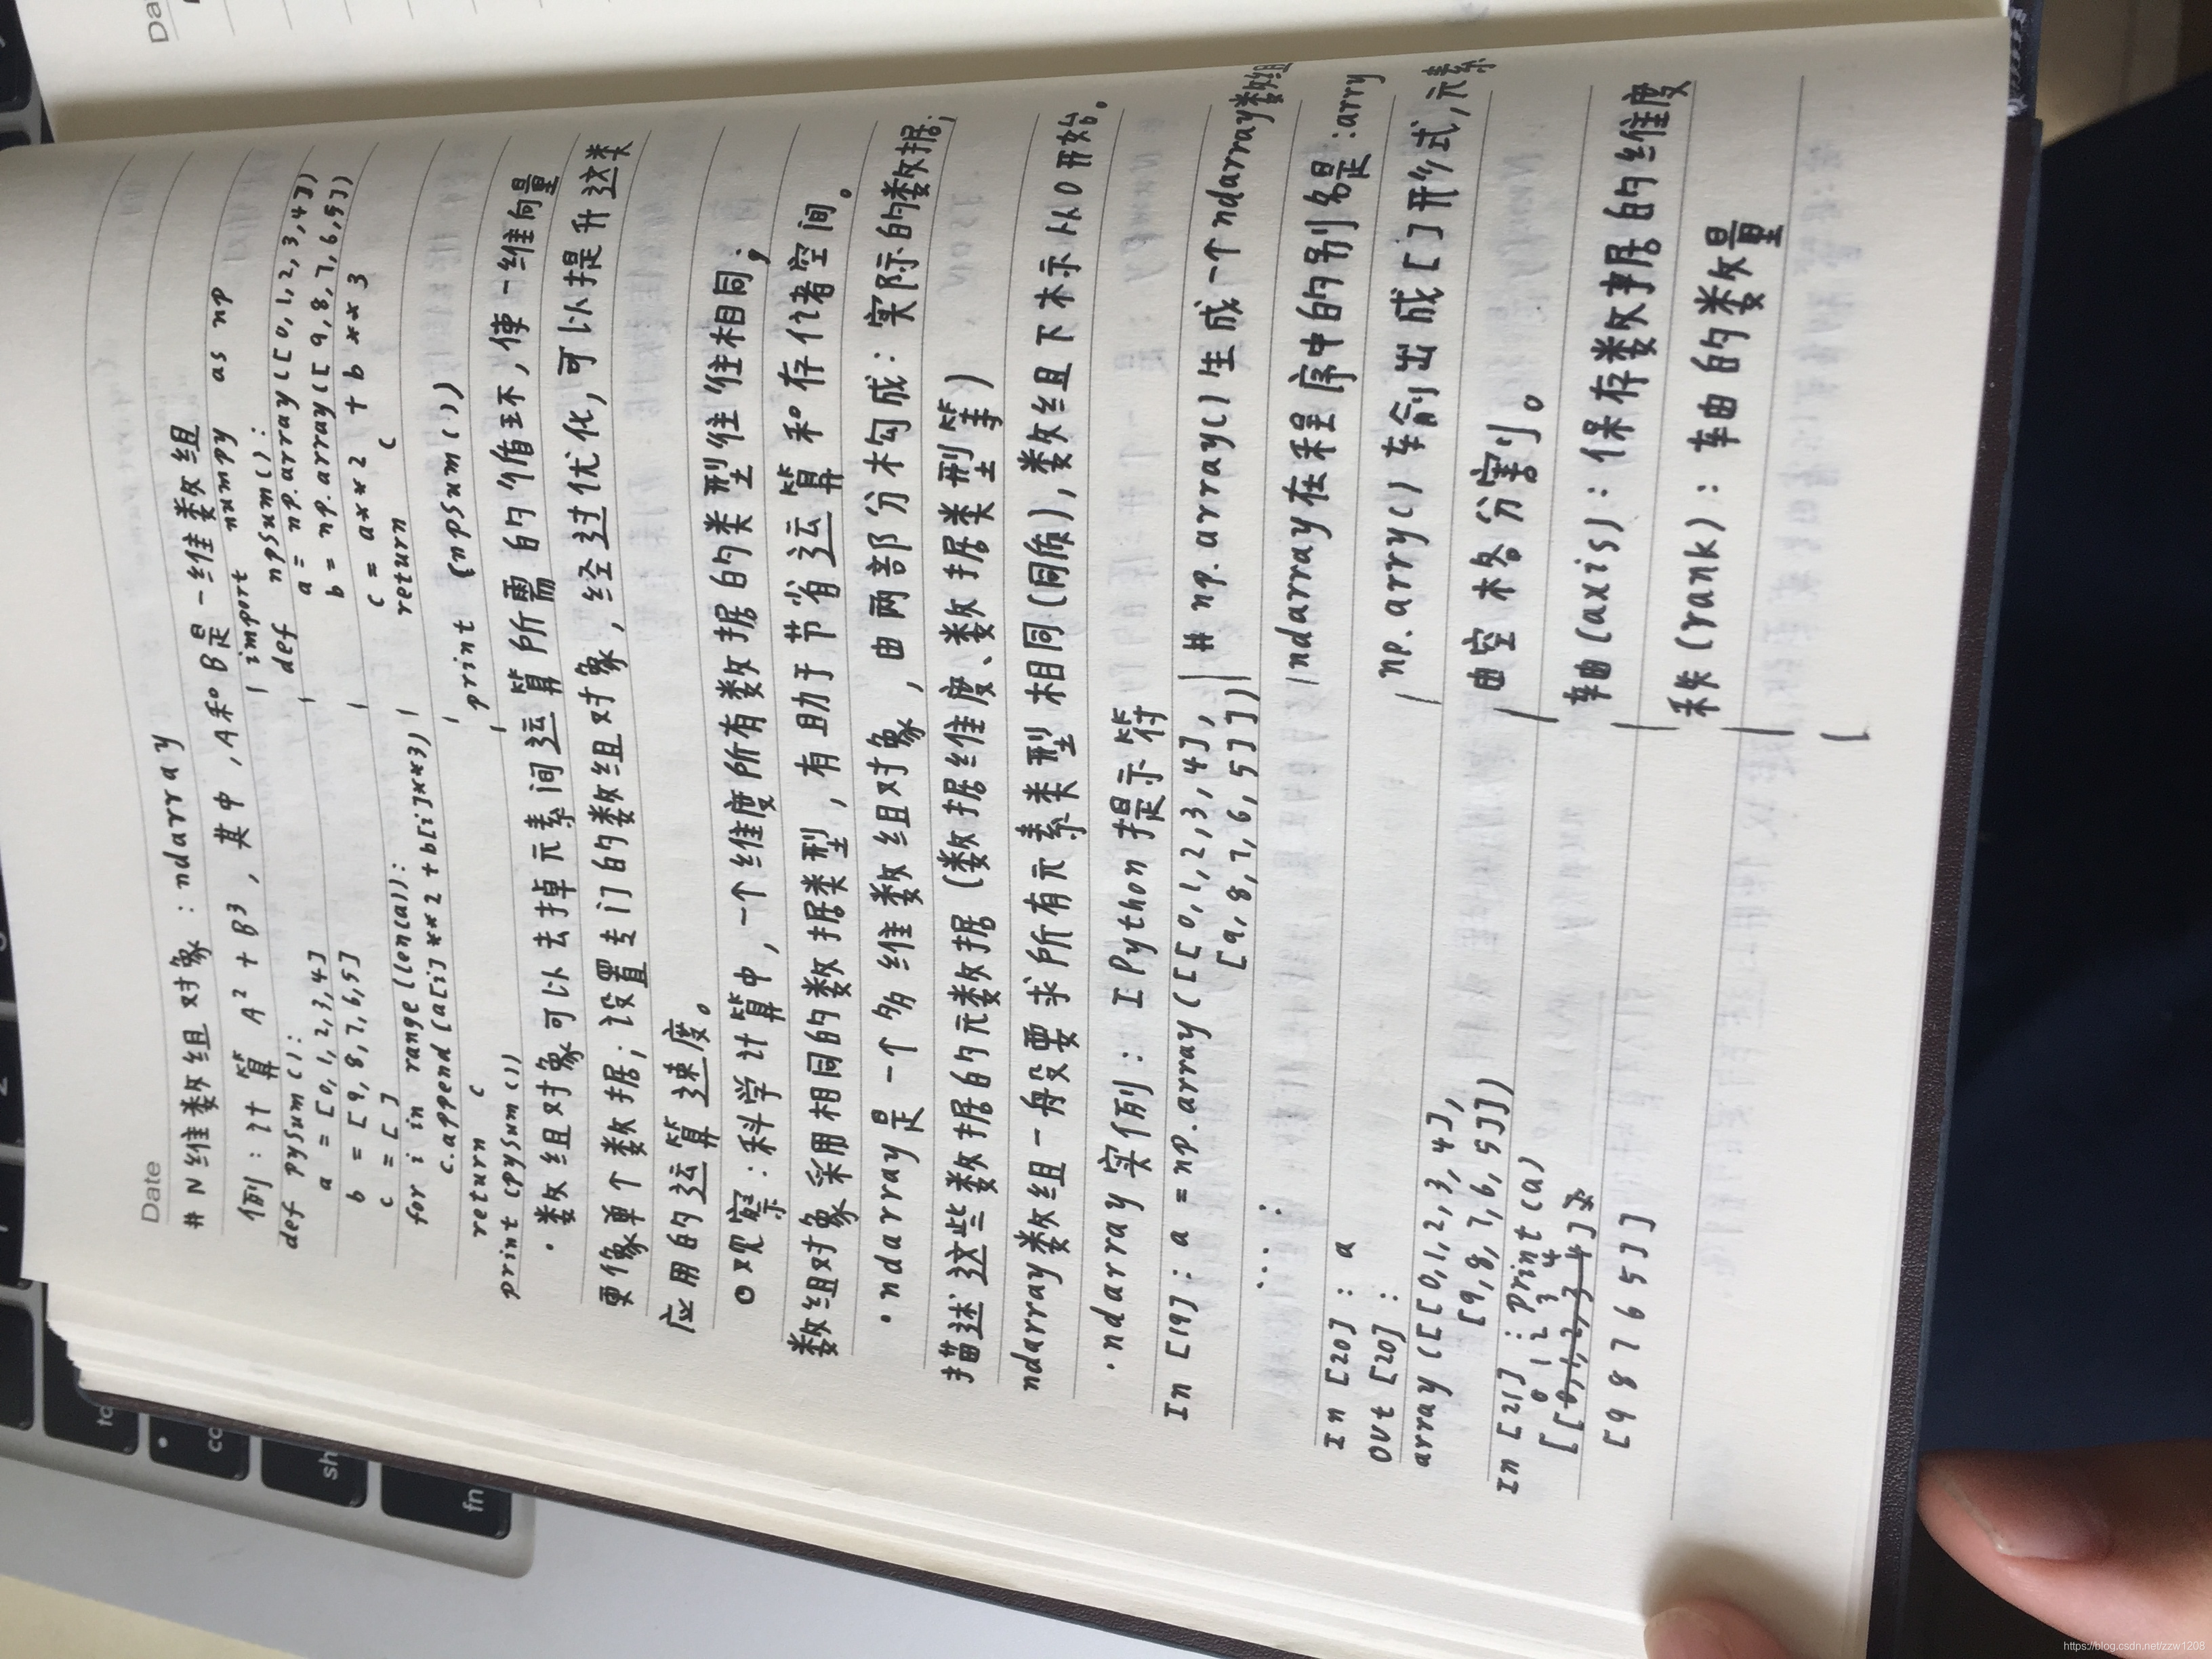 Date
# N维数组对象：ndarray
例：计算 A² + B³，其中，A和B是一维数组
def pySum():
a = [0,1,2,3,4]
b = [9,8,7,6,5]
c = []
for i in range(len(a)):
c.append(a[i]**2 + b[i]**3)
return c
print(pySum())
import numpy as np
def npSum():
a = np.array([0,1,2,3,4])
b = np.array([9,8,7,6,5])
c = a**2 + b**3
return c
print(npSum())
·数组对象可以去掉元素间运算所需的循环，使一维向量
更像单个数据；设置专门的数组对象，经过优化，可以提升这类
应用的运算速度。
○观察：科学计算中，一个维度所有数据的类型往往相同；
数组对象采用相同的数据类型，有助于节省运算和存储空间。
·ndarray是一个多维数组对象，由两部分构成：实际的数据；
描述这些数据的元数据（数据维度、数据类型等）
ndarray数组一般要求所有元素类型相同(同质)，数组下标从0开始。
·ndarray实例：IPython提示符
In [19]: a = np.array([[0,1,2,3,4],
[9,8,7,6,5]])
⋯⋮
In [20] : a
Out [20] :
array([[0,1,2,3,4],
[9,8,7,6,5]])
In [21] : print(a)
[[0 1 2 3 4]
[9 8 7 6 5]]
# np.array()生成一个ndarray数组
ndarray在程序中的别名是：arry
np.array()输出成[]形式，元素
由空格分割。
轴(axis)：保存数据的维度
秩(rank)：轴的数量
fn
https://blog.csdn.net/zzw1208